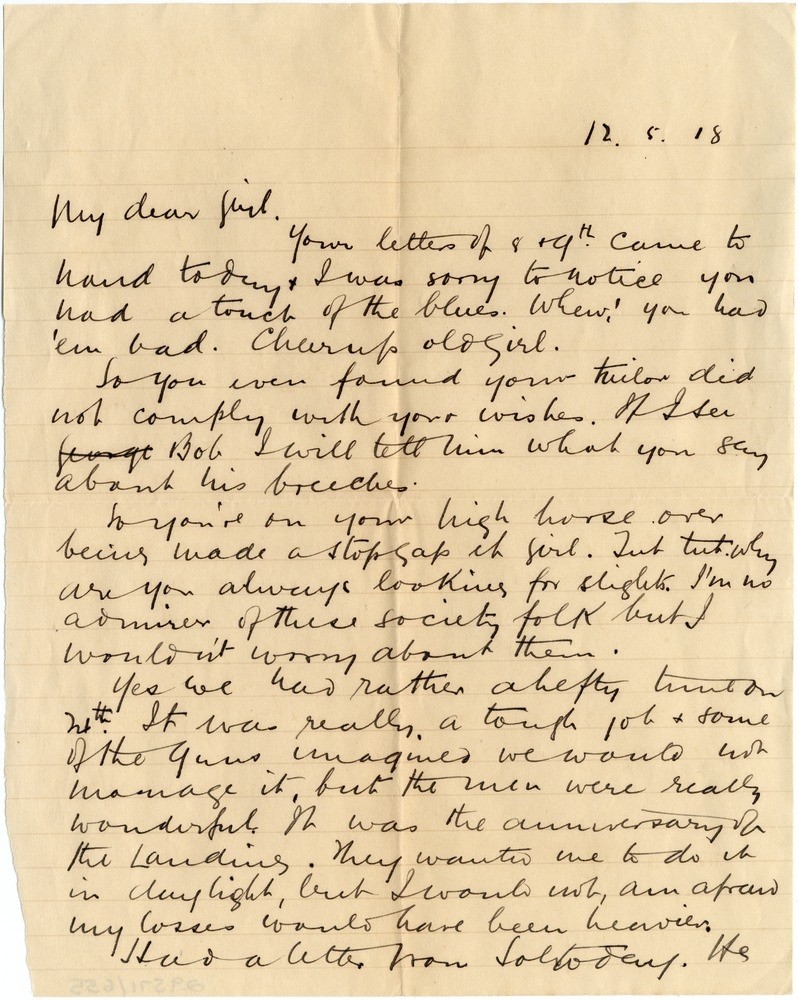 12. 5. 18
My dear girl.
Your letters of 8 & 9th. came to
hand today & I was sorry to notice you
had a touch of the blues. Whew! you had
'em bad. Cheerup old girl.
So you even found your tailor did
not comply with your wishes. If I see
George Bob I will tell him what you say
about his breeches.
So you're on your high horse over
being made a stopgap eh girl. Tut tut. why
are you always looking for slights. I'm no
admirer of these society folk but I
wouldn't worry about them.
Yes we had rather a hefty time on
24th. It was really a tough job & some
of the Guns imagined we would not
manage it, but the men were really
wonderful. It was the anniversary of
the Landing. They wanted me to do it
in daylight, but I would not, am afraid
my losses would have been heavier.
Had a letter from Sol today. He